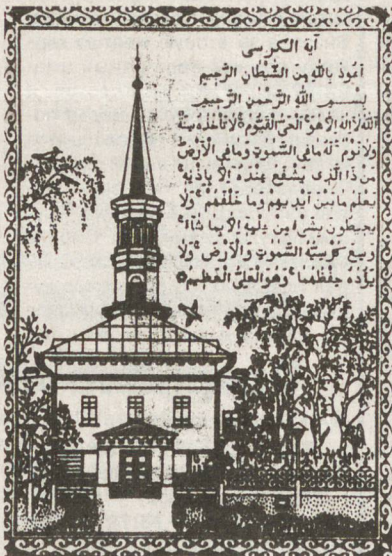 آية الكرسى
اعوذ بالله من الشيطان الرجيم
بسم الله الرحمن الرحيم
الله لا اله الا هو الحى القيوم لا تأخذه سنة
ولا نوم له ما فى السموت وما فى الارض
من ذا الذى يشفع عنده الا باذنه
يعلم ما بين ايديهم وما خلفهم ولا
يحيطون بشىء من علمه الا بما شاء
وسع كرسيه السموت والارض ولا
يؤده حفظهما وهو العلى العظيم